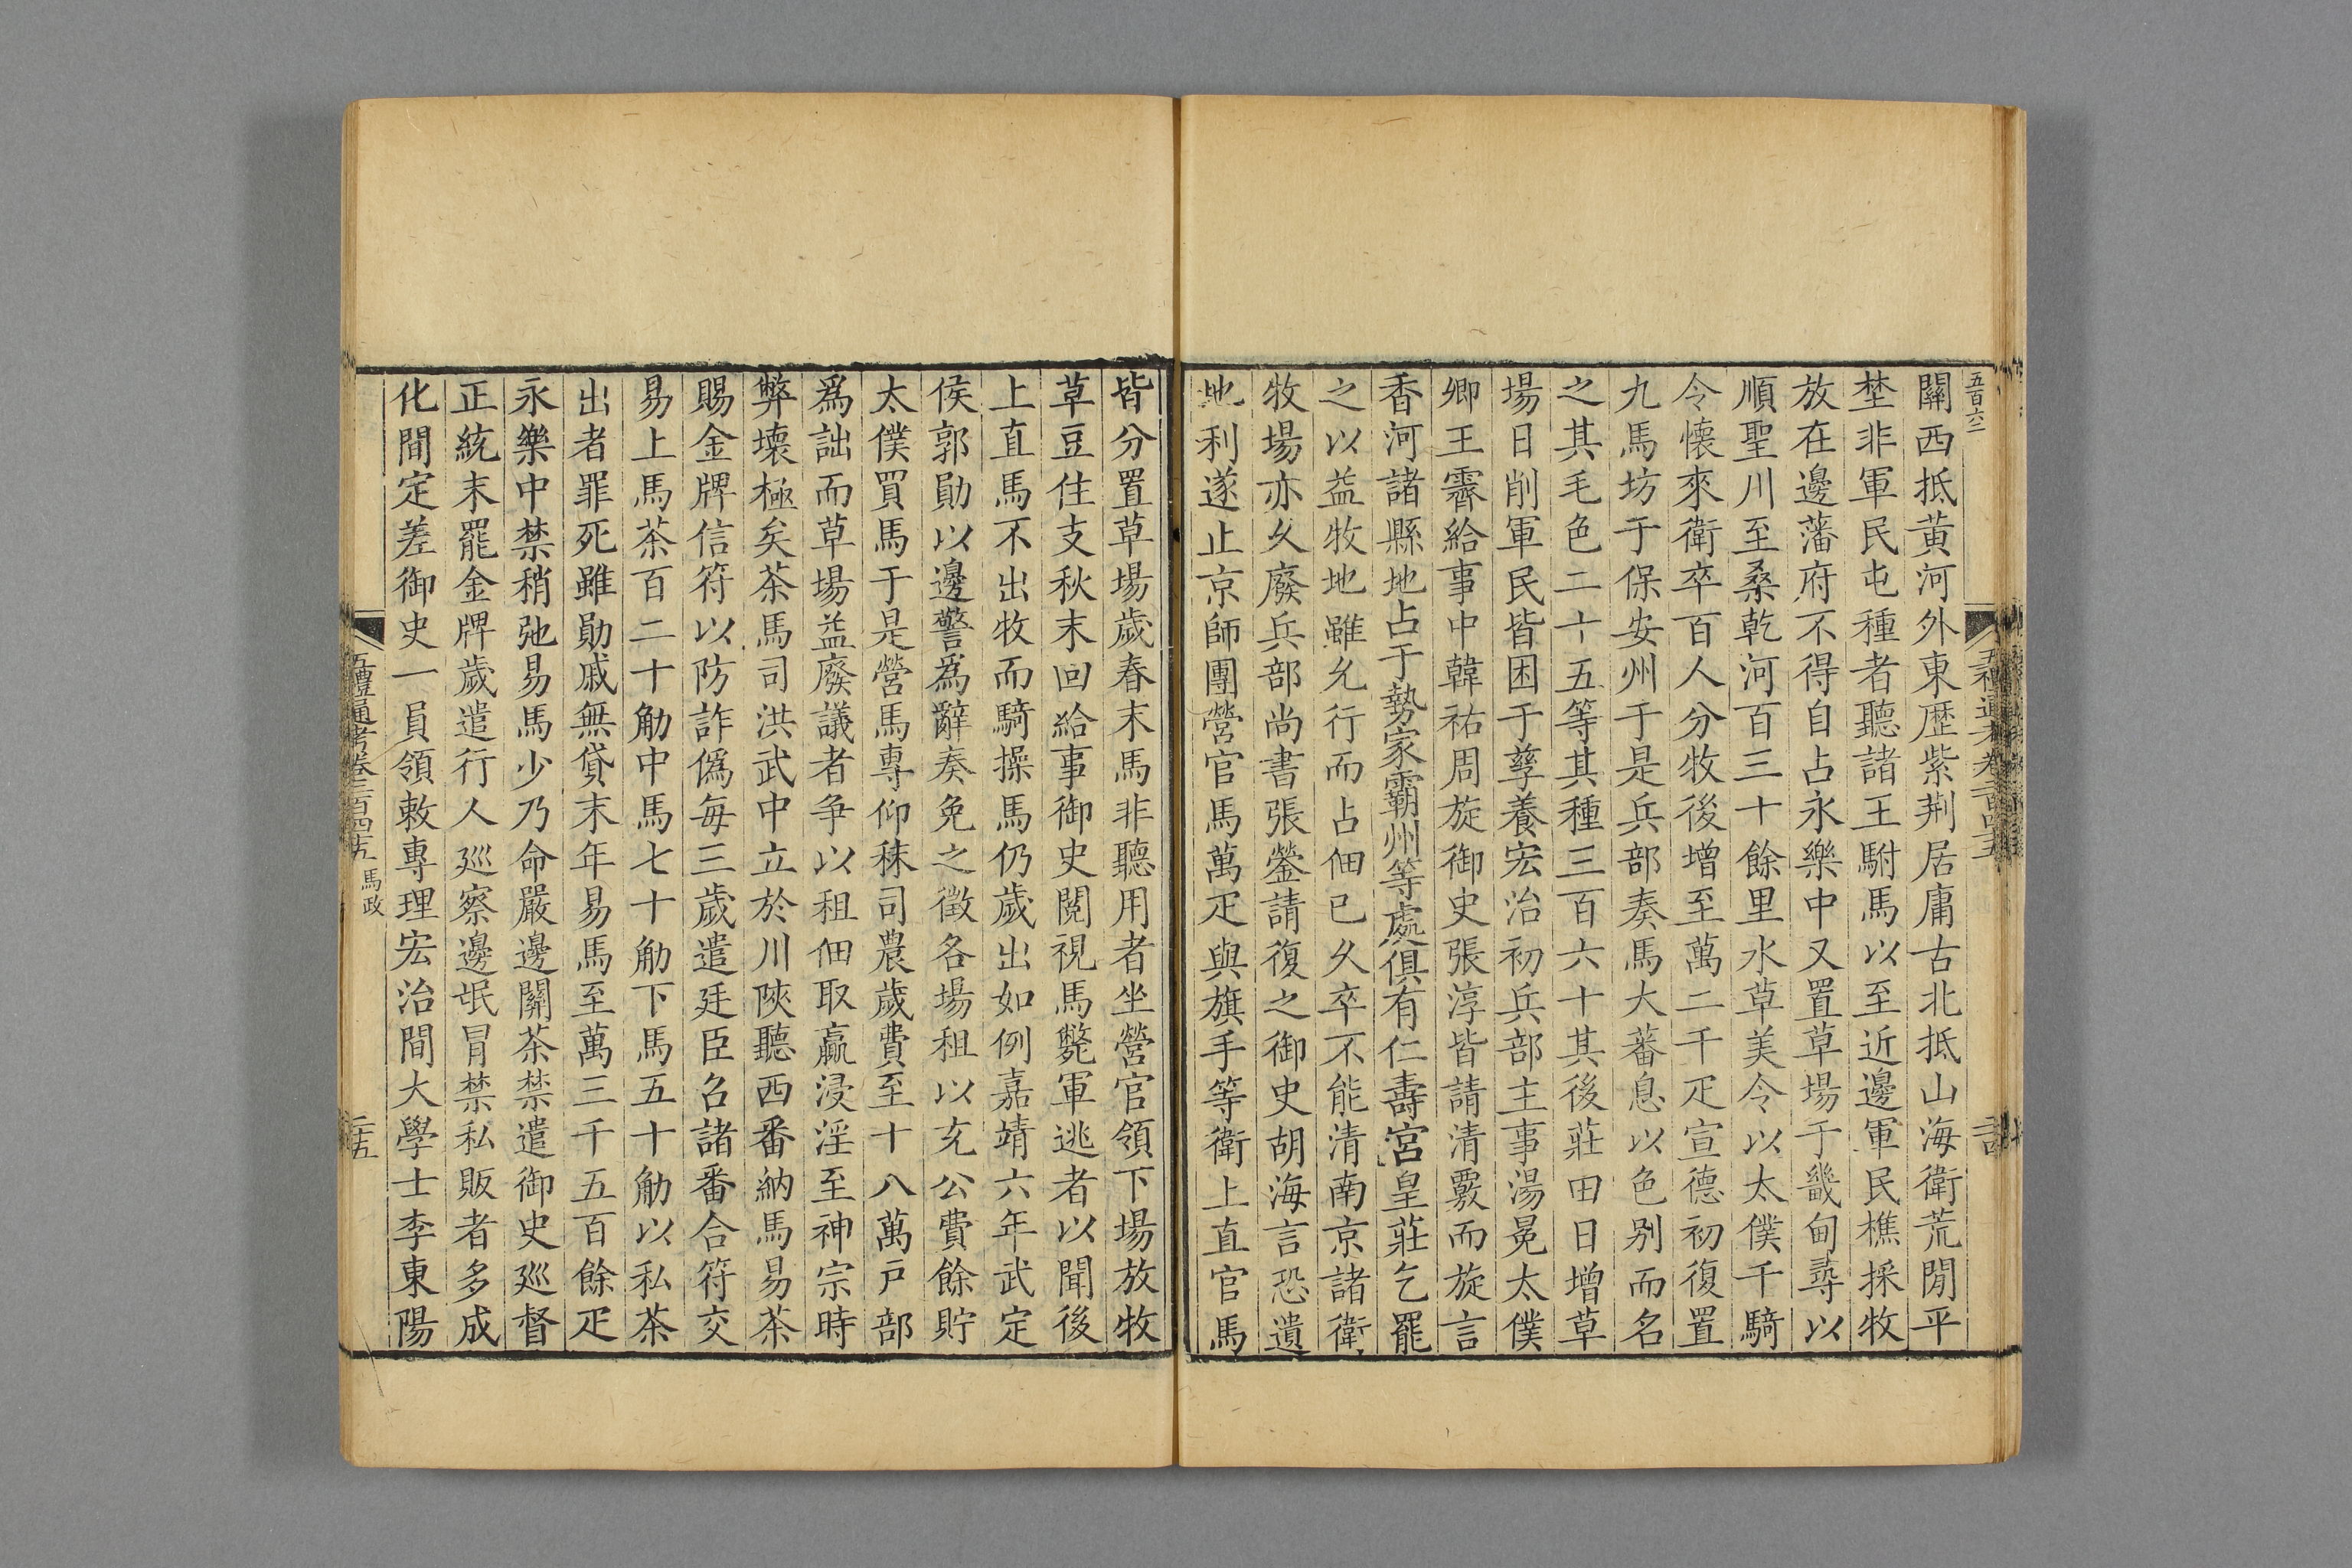 五百六二
關西抵黃河外東歴紫荆居庸古北抵山海衛荒閒平
埜非軍民屯種者聽諸王駙馬以至近邊軍民樵採牧
放在邊藩府不得自占永樂中又置草場于畿甸尋以
順聖川至桑乾河百三十餘里水草美令以太僕千騎
令懷來衛卒百人分牧後增至萬二千疋宣德初復置
九馬坊于保安州于是兵部奏馬大蕃息以色别而名
之其毛色二十五等其種三百六十其後莊田日增草
場日削軍民皆困于孳養宏治初兵部主事湯冕太僕
卿王霽給事中韓祐周旋御史張淳皆請清覈而旋言
香河諸縣地占于勢家霸州等處俱有仁壽宮皇莊乞罷
之以益牧地雖允行而占佃已久卒不能清南京諸衛
牧場亦久廢兵部尚書張鎣請復之御史胡海言恐遺
地利遂止京師團營官馬萬疋與旗手等衛上直官馬
皆分置草場歲春末馬非聽用者坐營官領下場放牧
草豆住支秋末回給事御史閱視馬斃軍逃者以聞後
上直馬不出牧而騎操馬仍歲出如例嘉靖六年武定
侯郭勛以邊警爲辭奏免之徵各場租以充公費餘貯
太僕買馬于是營馬專仰秣司農歲費至十八萬戸部
爲詘而草場益廢議者争以租佃取贏浸淫至神宗時
弊壞極矣茶馬司洪武中立於川陝聽西番納馬易茶
賜金牌信符以防詐僞每三歲遣廷臣召諸番合符交
易上馬茶百二十觔中馬七十觔下馬五十觔以私茶
出者罪死雖勛戚無貸末年易馬至萬三千五百餘疋
永樂中禁稍弛易馬少乃命嚴邊關茶禁遣御史廵督
正統末罷金牌歲遣行人廵察邊氓冒禁私販者多成
化間定差御史一員領敕專理宏治間大學士李東陽
五禮通考卷二百四十五 馬政
二十五